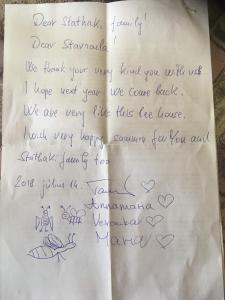 Dear Stathak. family!
Dear Stavroula!
We thank your very kind you with us
I hope next year we come back.
We are very like this bee house.
I wish very happy summer for You and
Stathak. family too
2018. július 14.
Annamária
Veronika
Mária